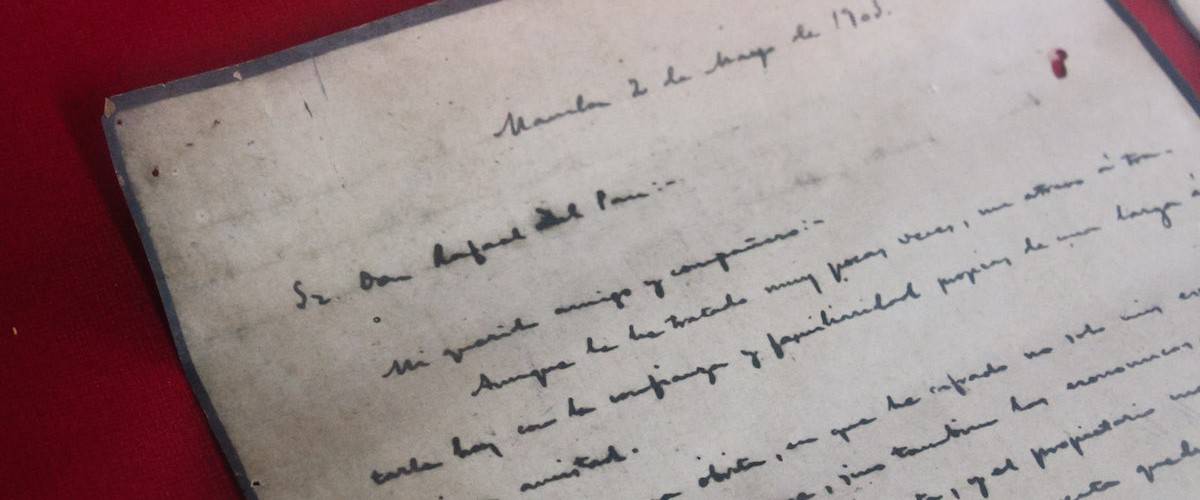 Manila 2 de Mayo de 1903.
Sr. Don Rafael del Pan:-
Mi querido amigo y compañero:-
Aunque le he tratado muy pocas veces, me atrevo á tra-
tarle hoy con la confianza y familiaridad propias de una larga
amistad.
obista, en que he cifrado no solo mis
, sino también los economicos,
, y el propietario